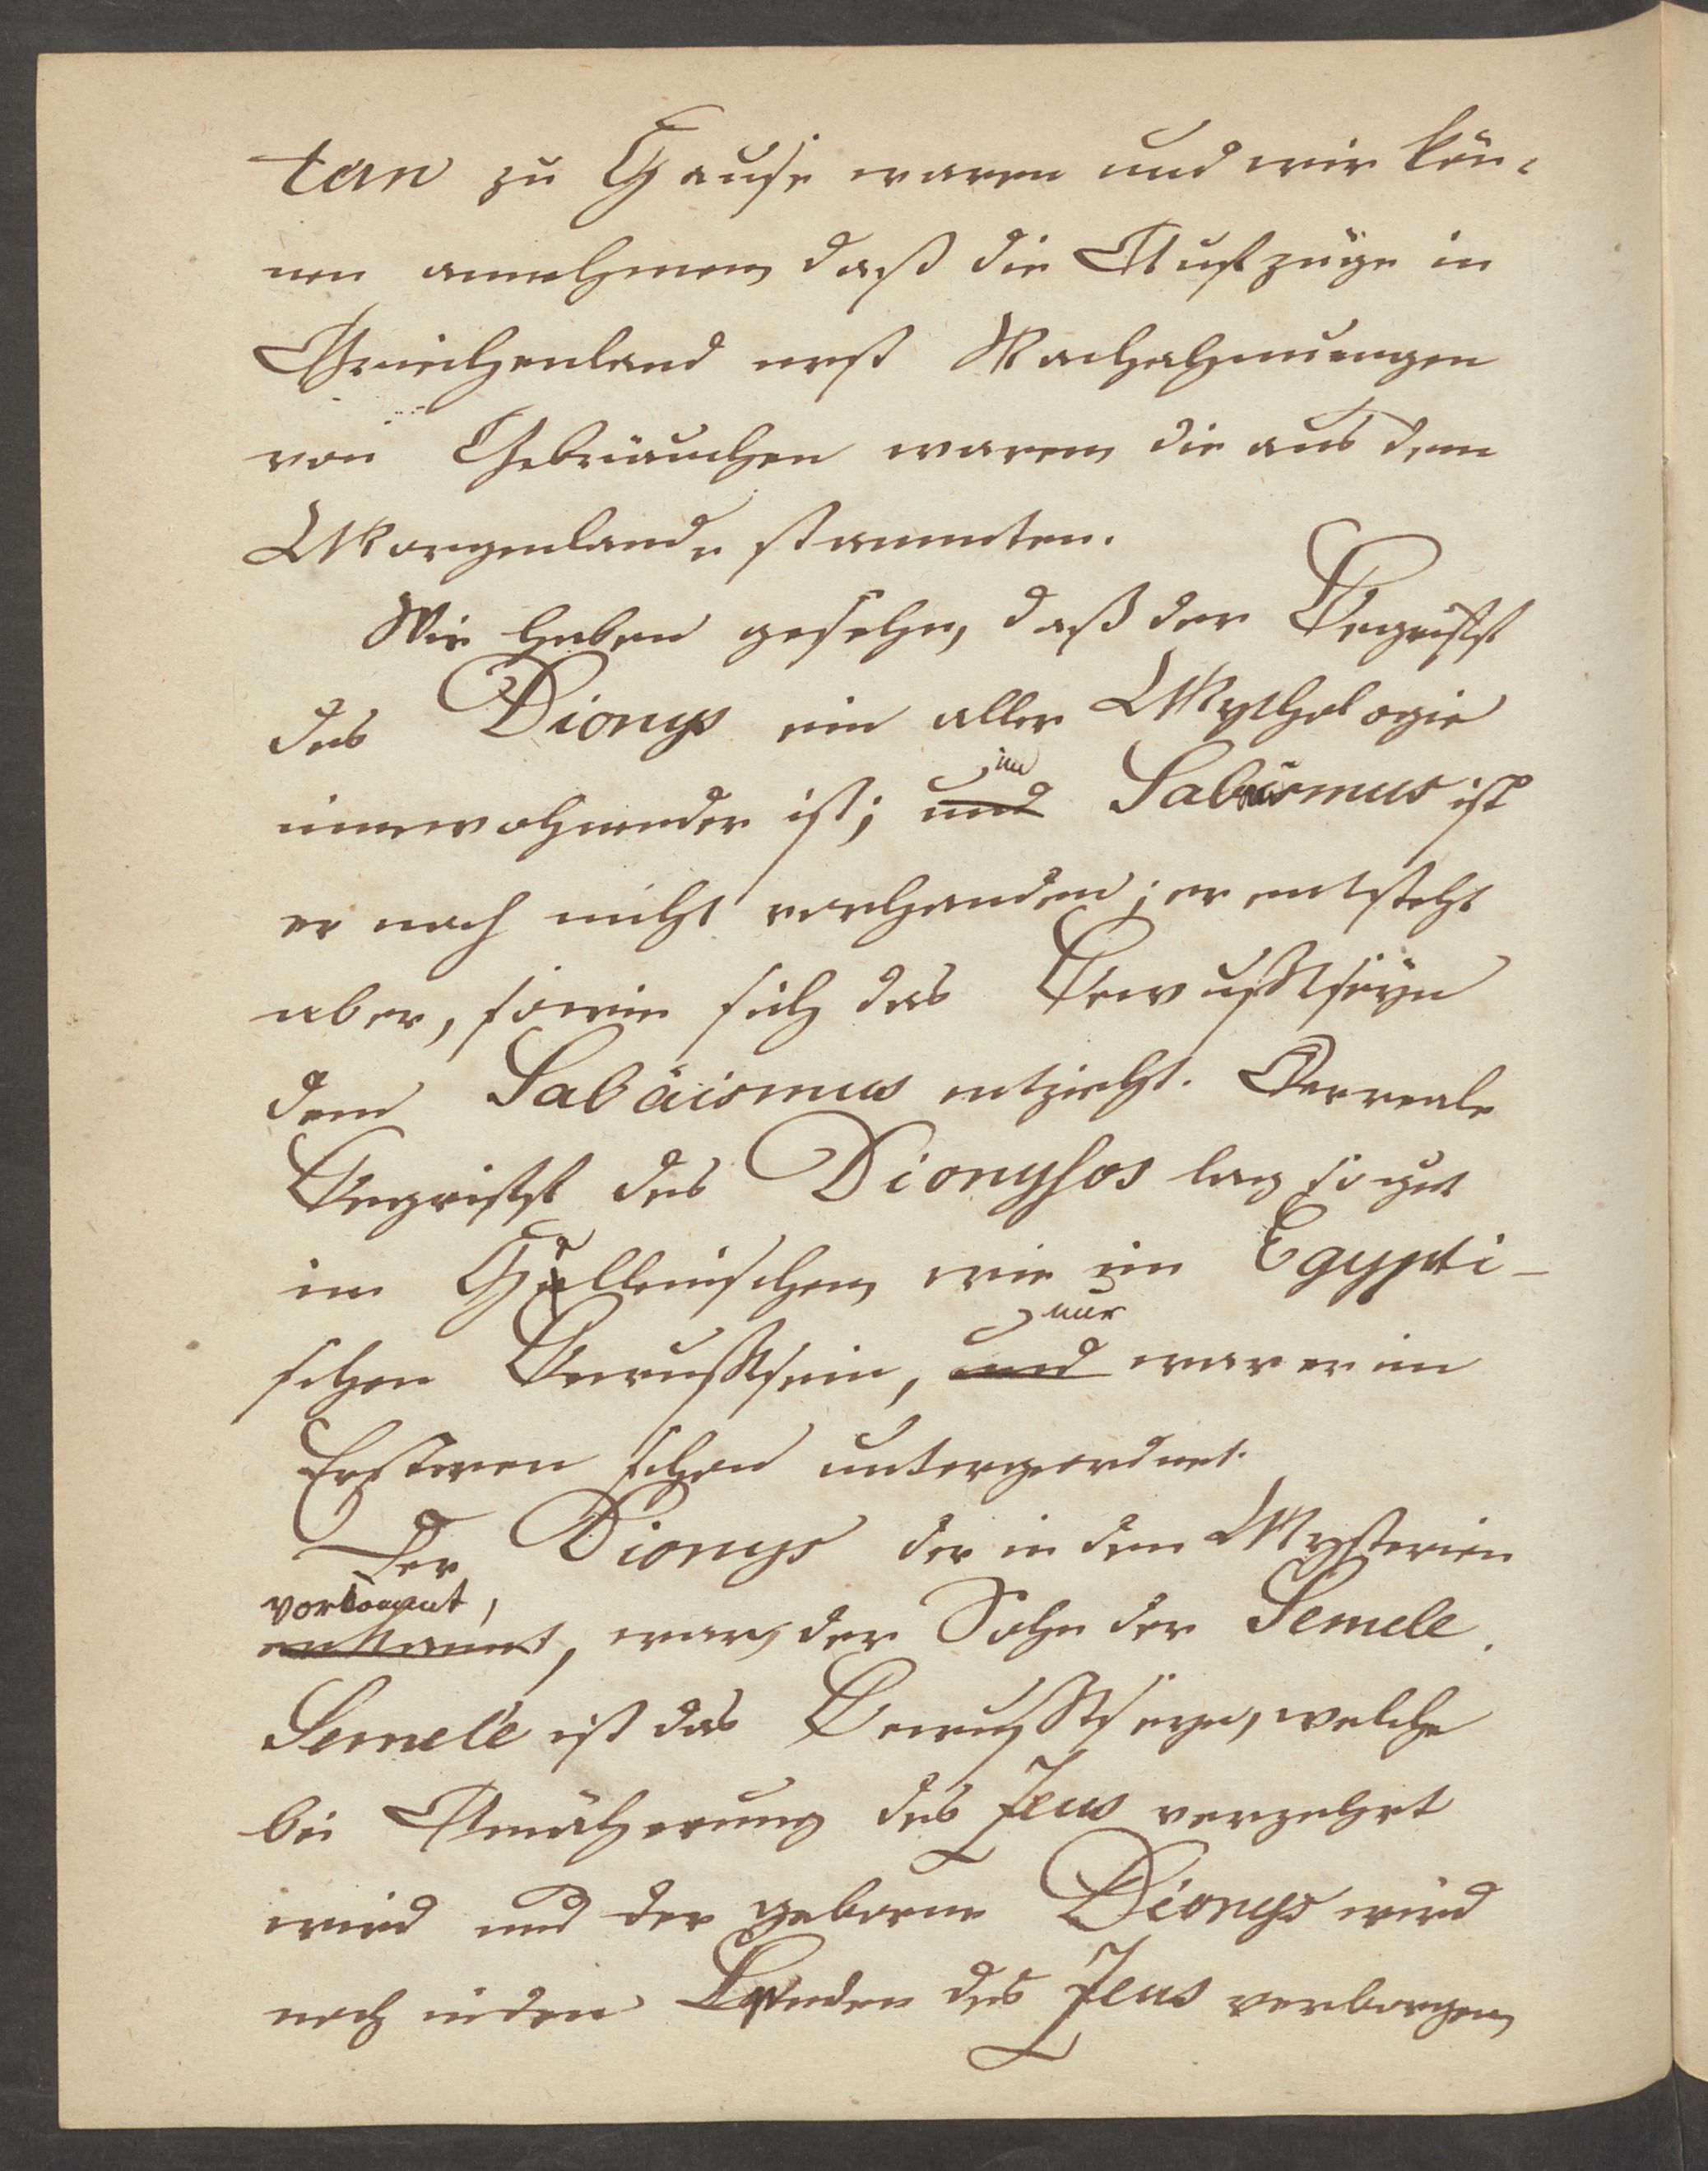 tan zu Hause waren und wir kön-
nen annehmen, daß die Aufzüge in
Griechenland erst Nachahmungen
von Gebräuchen waren, die aus dem
Morgenlande stammten.
Wir haben gesehn, daß der Begriff
des Dionys ein aller Mythologie
innewohnender ist; und im Sabäismus ist
er noch nicht vorhanden; er entsteht
aber, sowie sich das Bewußtseyn
dem Sabäismus entzieht. Der reale
Begriff des Dionysos lag so gut
im Hellenischen, wie im Egypti-
schen Bewußtsein, und nur war er im
Ersteren schon untergeordnet.
Der Dionys der in den Mysterien
vorkommt,
erkannt, war, der Sohn der Semele.
Semele ist das Bewußtseyn, welche
bei Annäherung des Zeus verzehrt
wird und der geborne Dionys wird
noch in den Lenden des Zeus verborgen,